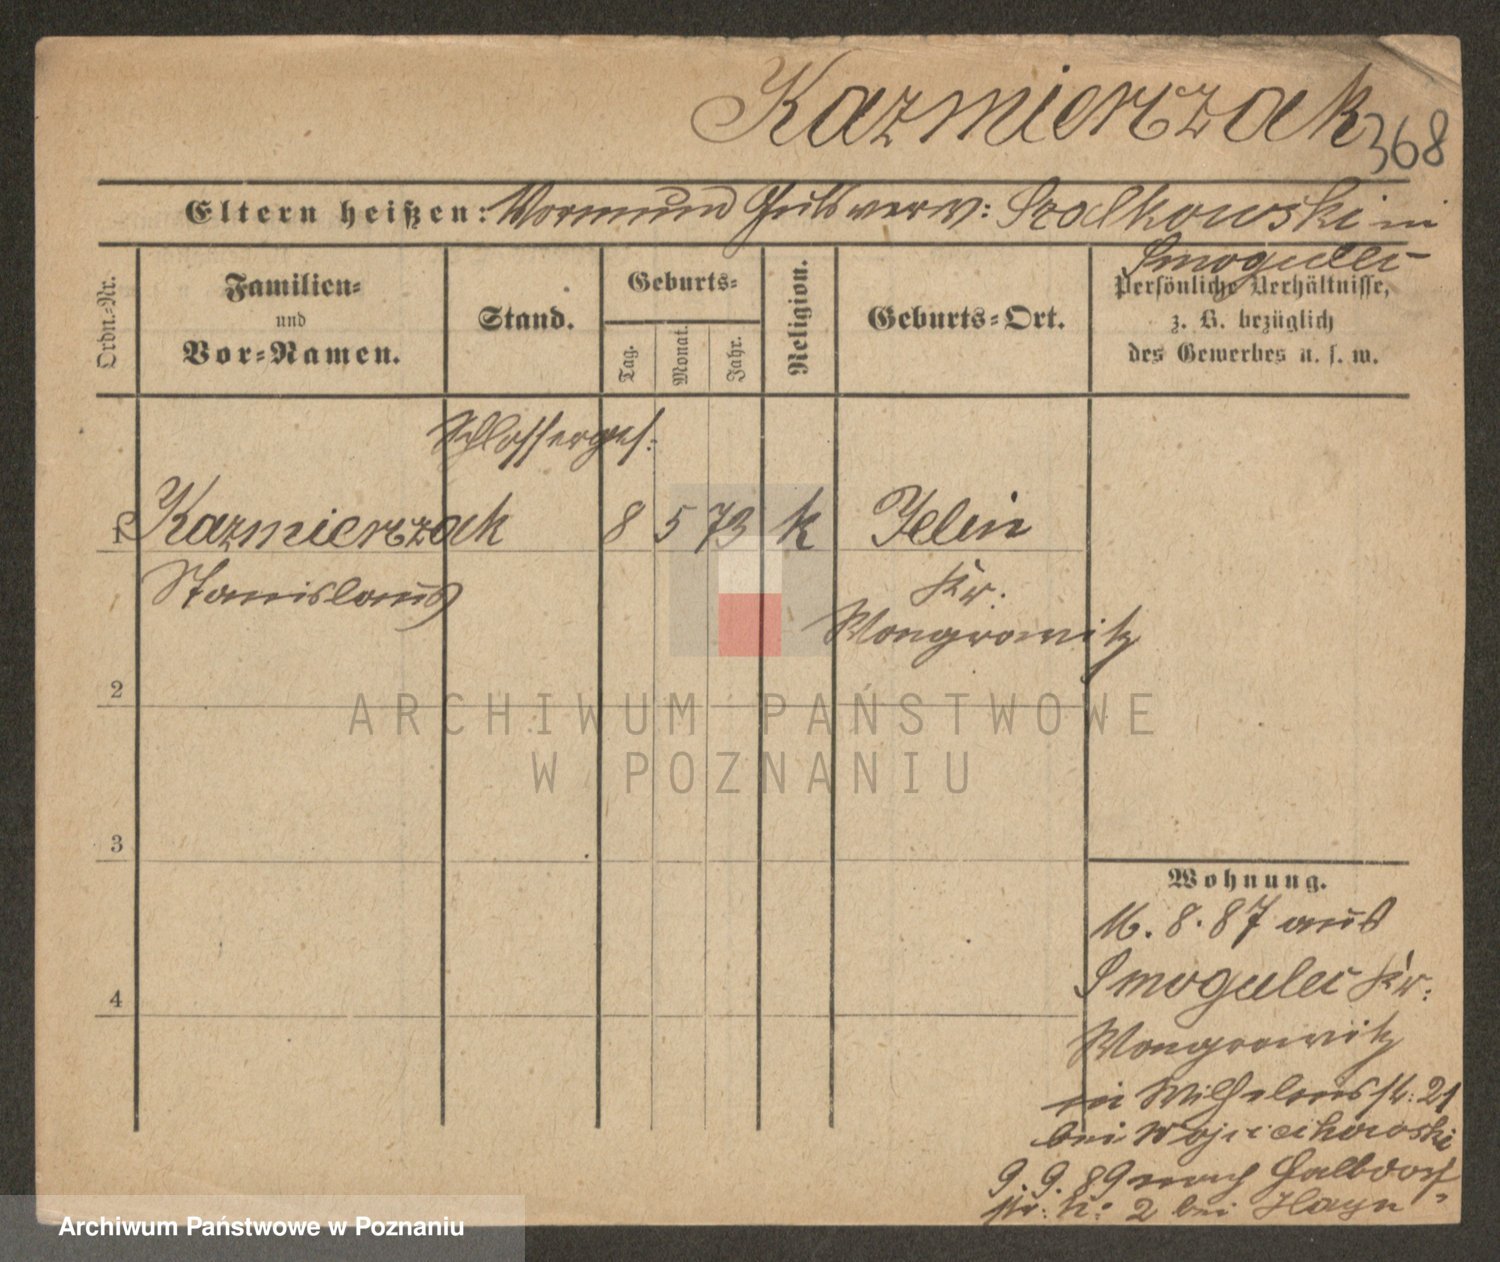 Kazmierczak 368
Eltern heißen: Vormund Gutsverw: Szalkowski in
Smogulec
Ordn.-Nr.
Familien-
und
Vor-Namen.
Stand.
Geburts-
Tag.
Monat.
Jahr.
Religion.
Geburts-Ort.
Persönliche Verhältnisse,
z. B. bezüglich
des Gewerbes u. s. w.
Schlosserges:
1 Kazmierczak 8 5 73 k Jelin
Stanislaus Kr.
Wongrowitz
2
3
4
ARCHIWUM PAŃSTWOWE
W POZNANIU
Wohnung.
16. 8. 87 aus
Smogulec Kr:
Wongrowitz
in Wilhelmsstr: 21
bei Wojciechowski
9. 9. 89 nach Halbdorf-
str: N: 2 bei Hayn
Archiwum Państwowe w Poznaniu